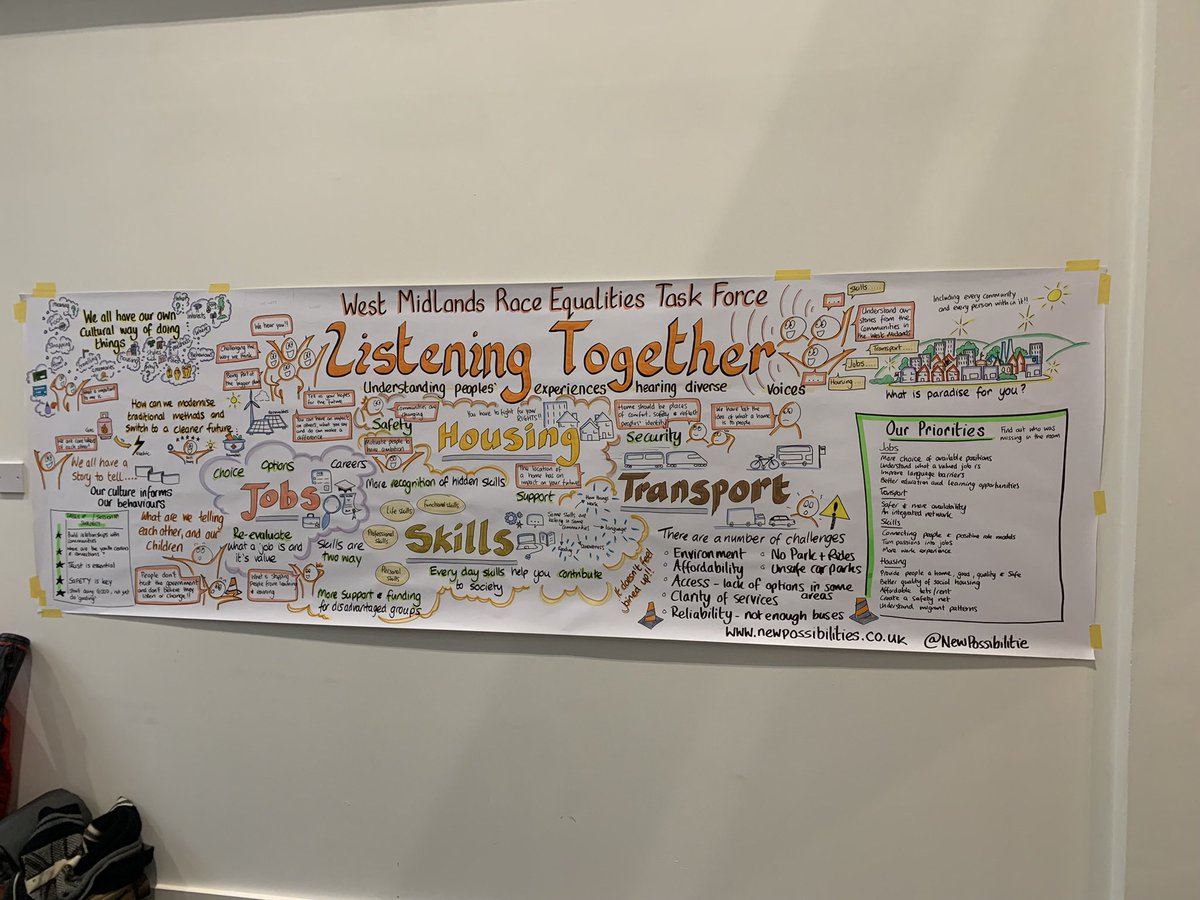 West Midlands Race Equalities Task Force
Listening Together
Understanding peoples' experiences hearing diverse voices
We all have our own
Cultural way of doing
things
We hear you!!
Challenging the
way we think
Being part of
the bigger plan
Tell us your hopes
for the future
You can have an impact
on others, what you say
and do can make a
difference
renewables
How can we modernise
traditional methods and
switch to a cleaner future
Gas
Electric
We all have a
Story to tell....
Our culture informs
Our behaviours
Build relationships with
communities
Trust is essential
SAFETY is key
Start doing GOOD, not just
do gooding!
What are we telling
each other, and our
Children
People don't
trust the government
and don't believe they
listen or change!!
Choice
Options
Careers
Jobs
Re-evaluate
what a job is and
it's value
Skills are
two way
What is stopping
people from learning
& earning
More support & funding
for disadvantaged groups
Safety
Communities are
changing
Motivate people to
have ambition
You have to fight for your
RIGHTS!!
Housing
The location of
a home has an
impact on your future
Support
More recognition of hidden skills
Life skills
Functional skills
Professional
skills
Personal
skills
Skills
Some skills are
lacking in some
communities
How things
work
Language
Every day skills help you contribute
to society
It doesn't feel
joined up!!
Home should be places
of comfort, safety & reflect
peoples' identity
We have lost the
idea of what a home
is to people
Security
Transport
There are a number of challenges
• Environment
• No Park + Rides
• Affordability
• Unsafe car parks
• Access - lack of options in some
areas
• Clarity of services
• Reliability - not enough buses
Skills.....
Understand our
stories from the
Communities in
the West Midlands
Transport....
Jobs....
Housing....
Including every community
and every person within it!!
What is paradise for you?
Our Priorities
Find out who was
missing in the room
Jobs
More choice of available positions
Understand what a valued job is
Improve language barriers
Better education and learning opportunities
Transport
Safer & more availability
An integrated network
Skills
Connecting people & positive role models
Turn passions into jobs
More work experience
Housing
Provide people a home, good, quality & Safe
Better quality of social housing
Affordable lets/rent
Create a safety net
Understand migrant patterns
www.newpossibilities.co.uk
@NewPossibilitie